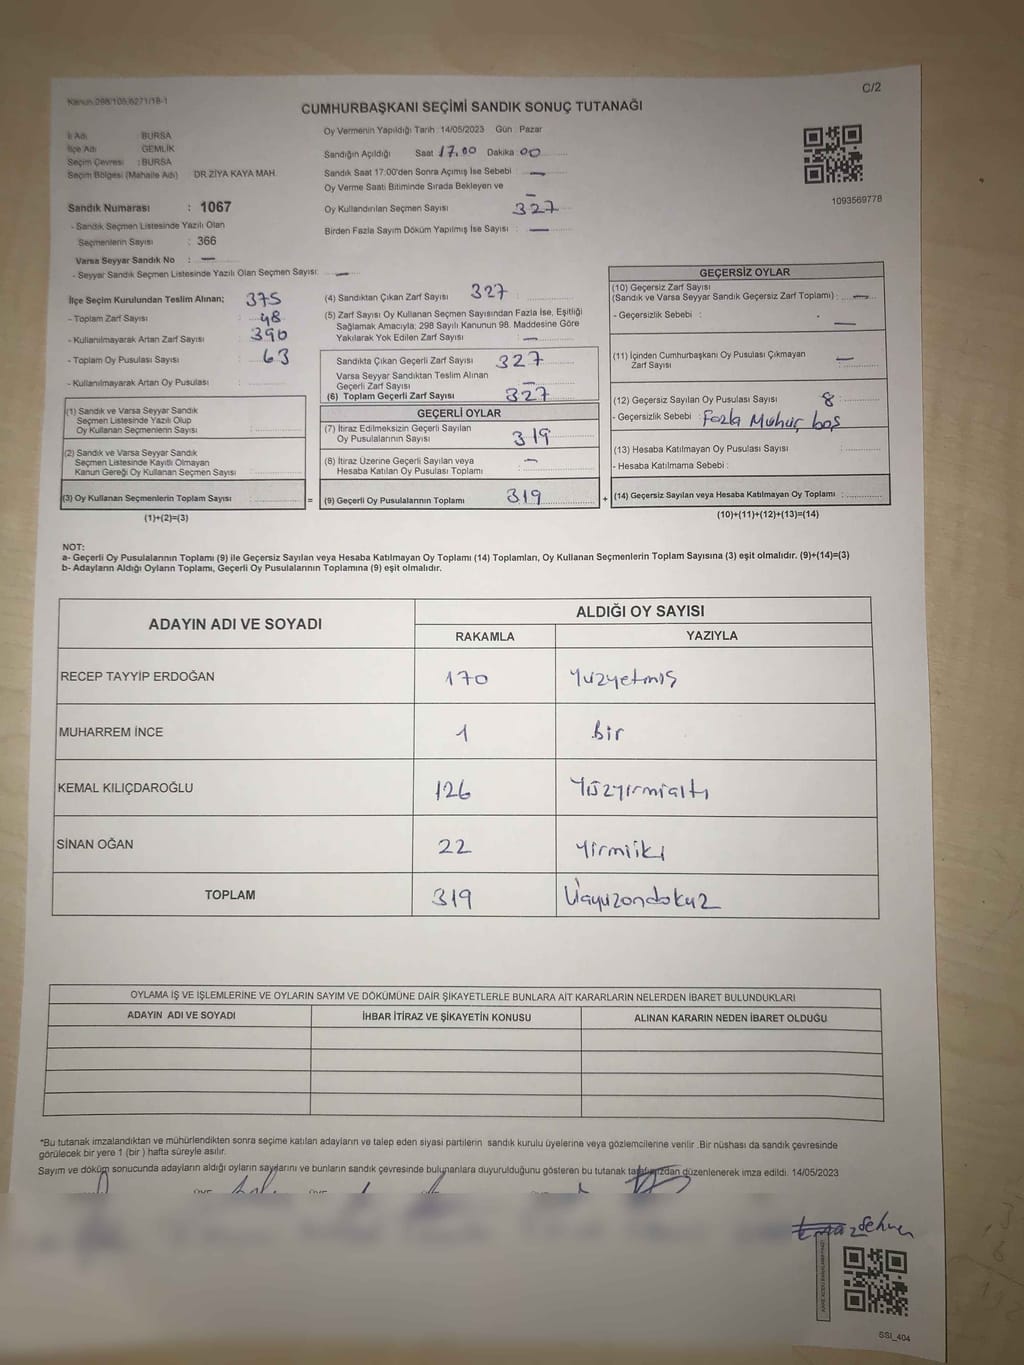 Kanun 298/105,6271/18-1
C/2
CUMHURBAŞKANI SEÇİMİ SANDIK SONUÇ TUTANAĞI
İl Adı : BURSA
İlçe Adı GEMLİK
Seçim Çevresi : BURSA
Seçim Bölgesi (Mahalle Adı) DR.ZİYA KAYA MAH.
Sandık Numarası : 1067
- Sandık Seçmen Listesinde Yazılı Olan
Seçmenlerin Sayısı : 366
Varsa Seyyar Sandık No : —
- Seyyar Sandık Seçmen Listesinde Yazılı Olan Seçmen Sayısı: —
Oy Vermenin Yapıldığı Tarih :14/05/2023 Gün : Pazar
Sandığın Açıldığı Saat 17.00 Dakika 00
Sandık Saat 17:00'den Sonra Açımış İse Sebebi —
Oy Verme Saati Bitiminde Sırada Bekleyen ve —
Oy Kullandırılan Seçmen Sayısı 327
Birden Fazla Sayım Döküm Yapılmış İse Sayısı : —
1093569778
İlçe Seçim Kurulundan Teslim Alınan; 375
- Toplam Zarf Sayısı : 48
- Kullanılmayarak Artan Zarf Sayısı : 390
- Toplam Oy Pusulası Sayısı : 63
- Kullanılmayarak Artan Oy Pusulası :
(1) Sandık ve Varsa Seyyar Sandık
Seçmen Listesinde Yazılı Olup
Oy Kullanan Seçmenlerin Sayısı :
(2) Sandık ve Varsa Seyyar Sandık
Seçmen Listesinde Kayıtlı Olmayan
Kanun Gereği Oy Kullanan Seçmen Sayısı :
(3) Oy Kullanan Seçmenlerin Toplam Sayısı : =
(1)+(2)=(3)
(4) Sandıktan Çıkan Zarf Sayısı 327
(5) Zarf Sayısı Oy Kullanan Seçmen Sayısından Fazla İse, Eşitliği
Sağlamak Amacıyla; 298 Sayılı Kanunun 98. Maddesine Göre
Yakılarak Yok Edilen Zarf Sayısı : —
Sandıkta Çıkan Geçerli Zarf Sayısı 327
Varsa Seyyar Sandıktan Teslim Alınan
Geçerli Zarf Sayısı —
(6) Toplam Geçerli Zarf Sayısı 327
GEÇERLİ OYLAR
(7) İtiraz Edilmeksizin Geçerli Sayılan
Oy Pusulalarının Sayısı : 319
(8) İtiraz Üzerine Geçerli Sayılan veya
Hesaba Katılan Oy Pusulası Toplamı : —
(9) Geçerli Oy Pusulalarının Toplamı 319 +
GEÇERSİZ OYLAR
(10) Geçersiz Zarf Sayısı
(Sandık ve Varsa Seyyar Sandık Geçersiz Zarf Toplamı) : —
- Geçersizlik Sebebi : —
(11) İçinden Cumhurbaşkanı Oy Pusulası Çıkmayan
Zarf Sayısı —
(12) Geçersiz Sayılan Oy Pusulası Sayısı 8
- Geçersizlik Sebebi : Fazla Mühür, boş
(13) Hesaba Katılmayan Oy Pusulası Sayısı :
- Hesaba Katılmama Sebebi :
(14) Geçersiz Sayılan veya Hesaba Katılmayan Oy Toplamı :
(10)+(11)+(12)+(13)=(14)
NOT:
a- Geçerli Oy Pusulalarının Toplamı (9) ile Geçersiz Sayılan veya Hesaba Katılmayan Oy Toplamı (14) Toplamları, Oy Kullanan Seçmenlerin Toplam Sayısına (3) eşit olmalıdır. (9)+(14)=(3)
b- Adayların Aldığı Oyların Toplamı, Geçerli Oy Pusulalarının Toplamına (9) eşit olmalıdır.
ADAYIN ADI VE SOYADI
ALDIĞI OY SAYISI
RAKAMLA YAZIYLA
RECEP TAYYİP ERDOĞAN 170 Yüzyetmiş
MUHARREM İNCE 1 bir
KEMAL KILIÇDAROĞLU 126 Yüzyirmialtı
SİNAN OĞAN 22 Yirmiiki
TOPLAM 319 Üçyüzondokuz
OYLAMA İŞ VE İŞLEMLERİNE VE OYLARIN SAYIM VE DÖKÜMÜNE DAİR ŞİKAYETLERLE BUNLARA AİT KARARLARIN NELERDEN İBARET BULUNDUKLARI
ADAYIN ADI VE SOYADI İHBAR İTİRAZ VE ŞİKAYETİN KONUSU ALINAN KARARIN NEDEN İBARET OLDUĞU
*Bu tutanak imzalandıktan ve mühürlendikten sonra seçime katılan adayların ve talep eden siyasi partilerin sandık kurulu üyelerine veya gözlemcilerine verilir .Bir nüshası da sandık çevresinde
görülecek bir yere 1 (bir ) hafta süreyle asılır.
Sayım ve döküm sonucunda adayların aldığı oyların sayılarını ve bunların sandık çevresinde bulunanlara duyurulduğunu gösteren bu tutanak tarafımızdan düzenlenerek imza edildi. 14/05/2023
SSI_404